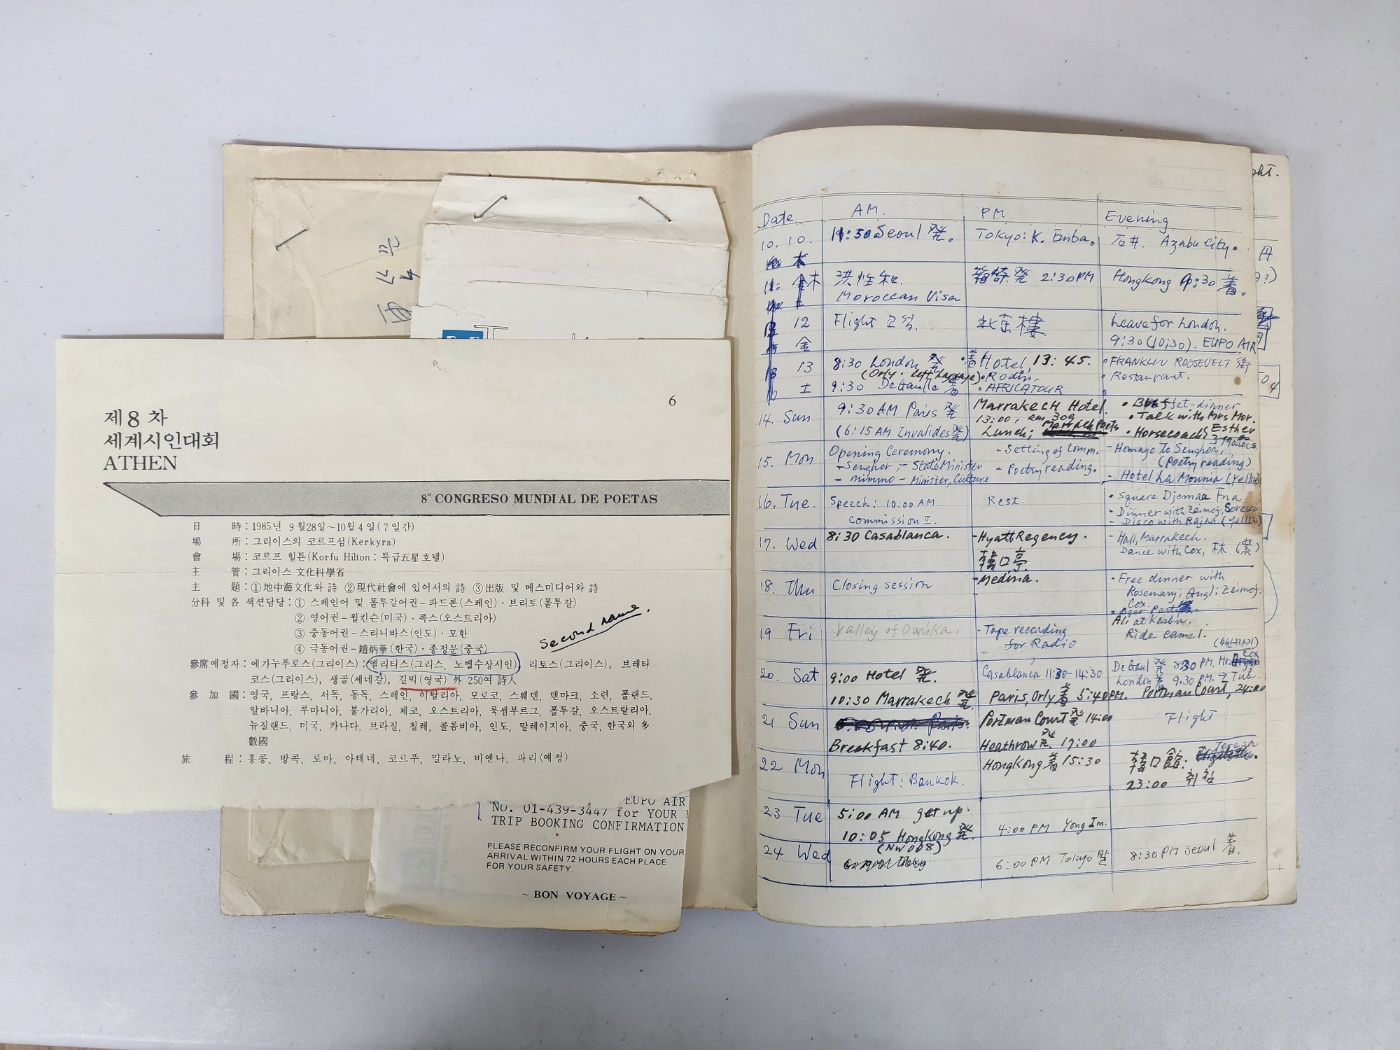 6
제8차
세계시인대회
ATHEN
8° CONGRESO MUNDIAL DE POETAS
日 時 : 1985년 9월28일~10월4일(7일간)
場 所 : 그리이스의 코르프섬(Kerkyra)
會 場 : 코르프 힐튼(Korfu Hilton : 특급五星호텔)
主 管 : 그리이스 文化科學省
主 題 : ①地中海文化와 詩 ②現代社會에 있어서의 詩 ③出版 및 메스미디어와 詩
분과 및 각 섹션담당 : ① 스페인어 및 폴투갈어권-파드론(스페인)·브리토(폴투갈)
② 영어권-윌킨슨(미국)·콕스(오스트리아)
③ 중동어권-스리니바스(인도)·모한
④ 극동어권-趙炳華(한국)·종정문(중국)
second name.
參席예정자 : 에가누푸로스(그리이스) (엘리티스(그리스, 노벨수상시인), 리토스(그리이스), 브레타
코스(그리이스), 생골(세네갈), 길비(영국) 外 250여 詩人
參 加 國 : 영국, 프랑스, 서독, 동독, 스페인, 이탈리아, 모로코, 스웨덴, 덴마크, 소련, 폴랜드,
알바니아, 루마니아, 불가리아, 체코, 오스트리아, 룩셈부르그, 폴투갈, 오스트랄리아,
뉴질랜드, 미국, 카나다, 브라질, 칠레, 콜롬비아, 인도, 말레이지아, 중국, 한국외 多
數國
旅 程 : 홍콩, 방콕, 로마, 아테네, 코르푸, 밀라노, 비엔나, 파리(예정)
EUPO AIR
NO. 01-439-3447 for YOUR
TRIP BOOKING CONFIRMATION
PLEASE RECONFIRM YOUR FLIGHT ON YOUR
ARRIVAL WITHIN 72 HOURS EACH PLACE
FOR YOUR SAFETY.
~ BON VOYAGE ~
Date AM. PM. Evening
10. 10. 11:50 Seoul 発. Tokyo: K. Emba. 石井. Azabu City.
木
11. 洪性和. 2:30PM Hongkong 9:30 着.
Moroccan Visa
12 Flight 北京樓 Leave for London.
金 9:30 (10:30). EUPO AIR
13 8:30 London 着 Hotel, 13:45. FRANKLIN ROOSEVELT 街
(Orly. left baggage) Rodin. Restaurant.
土 9:30 De Gaulle 着 AFRICATOUR
14. Sun 9:30 AM Paris 発 Marrakech Hotel. Buffet-dinner
13:00, rm. 309 Talk with Mrs Mor.
(6:15 AM Invalides 発) Lunch; Horsecoach, Esther
15. Mon Opening Ceremony. - Setting of Comm. - Homage to Senghor,
- Senghor, - State Minister - Poetry reading. (Poetry reading)
- mimmo - Minister, Culture - Hotel La Mounia (Yellow
16. Tue. Speech: 10:00 AM Rest Square Djemaa Fna
Commission II. Dinner with Zeimos, Sorescu
Disco with Rajna (Yellow)
17. Wed 8:30 Casablanca. - Hyatt Regency. - Hall, Marrakech.
韓口亭 Dance with Cox, 林
18. Thu Closing session - Medina. Free dinner with
Rosemary, Angl; Zeimos,
Cox
Ali at Kasba.
19 Fri Valley of Ourika. - Tape recording Ride camel.
for Radio
20. Sat 9:00 Hotel 発. Casablanca 11:30-14:30 De Gaul 発 8:30 PM. Mr. Cox
London 着 9:30 PM. Tub.
10:30 Marrakech 発 Paris, Orly 着 5:40 PM. Portman Court, 24:00
21 Sun Portman Court 発 14:00 Flight
Breakfast 8:40. Heathrow 発, 17:00
22 Mon Flight: Bankok. Hongkong 着 15:30 韓口館:
23:00 취침
23 Tue 5:00 AM get up.
10:05 Hongkong 発. 4:00 PM Yong Im.
(NW 008)
24 Wed 6:00 PM Tokyo 발 8:30 PM Seoul 着.